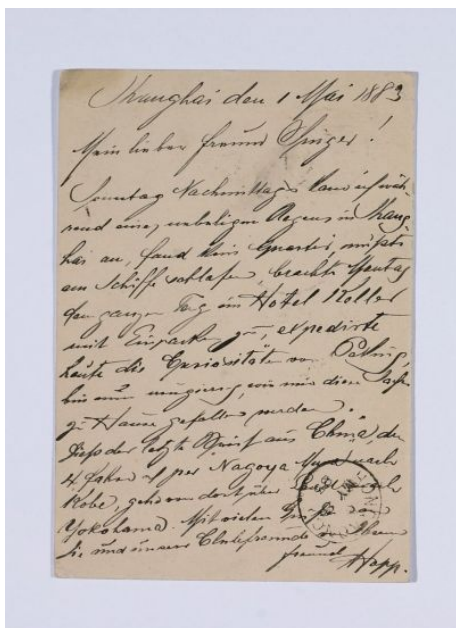 Shanghai den 1 Mai 1883
Mein lieber Freund Singer!
Sonntag Nachmittags kam ich wäh-
rend eines nebeligen Regens in Shang-
hai an, fand kein Quartier, mußte
am Schiffe schlafen, brachte Montag
den ganzen Tag im Hotel Koller
mit Einpacken zu, expedirte
heute die Curiosität von Peking,
bin nun neugierig, wie mir diese Sache
zu Hause gefallen werden.
Dieß der letzte Gruß aus China, den
4. fahre ich per Nagoya Maru nach
Kobe, gehe von dort über
Yokohama. Mit vielen Grüßen an
Sie und unsere Clubfreunde Ihren
Freund Happ.